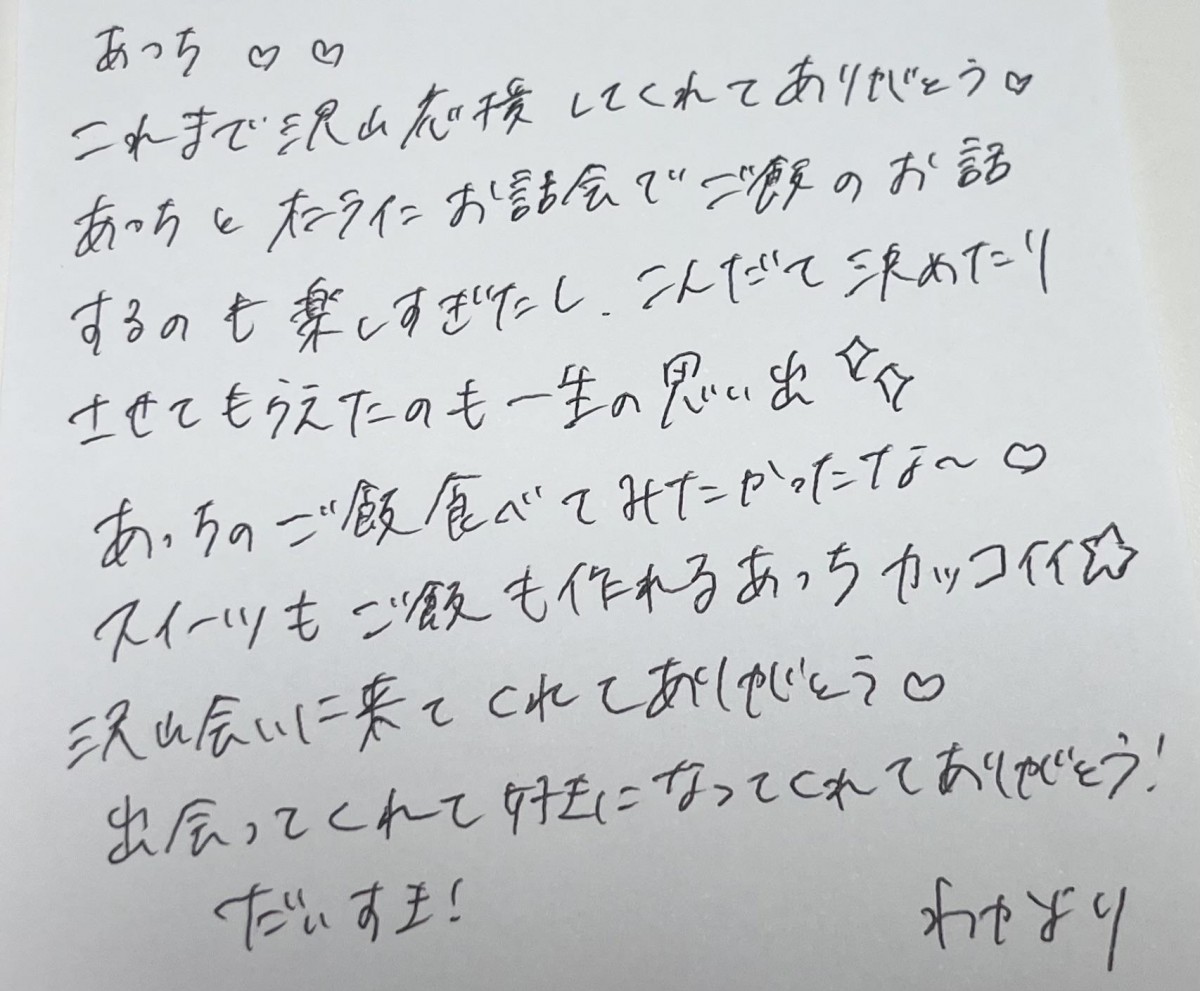 あっち♡♡
これまで沢山応援してくれてありがとう♡
あっちとオンラインお話会でご飯のお話
するのも楽しすぎたし、こんだて決めたり
させてもらえたのも一生の思い出✧✧
あっちのご飯食べてみたかったな〜♡
スイーツもご飯も作れるあっちカッコイイ☆
沢山会いに来てくれてありがとう♡
出会ってくれて好きになってくれてありがとう!
だいすき!
より